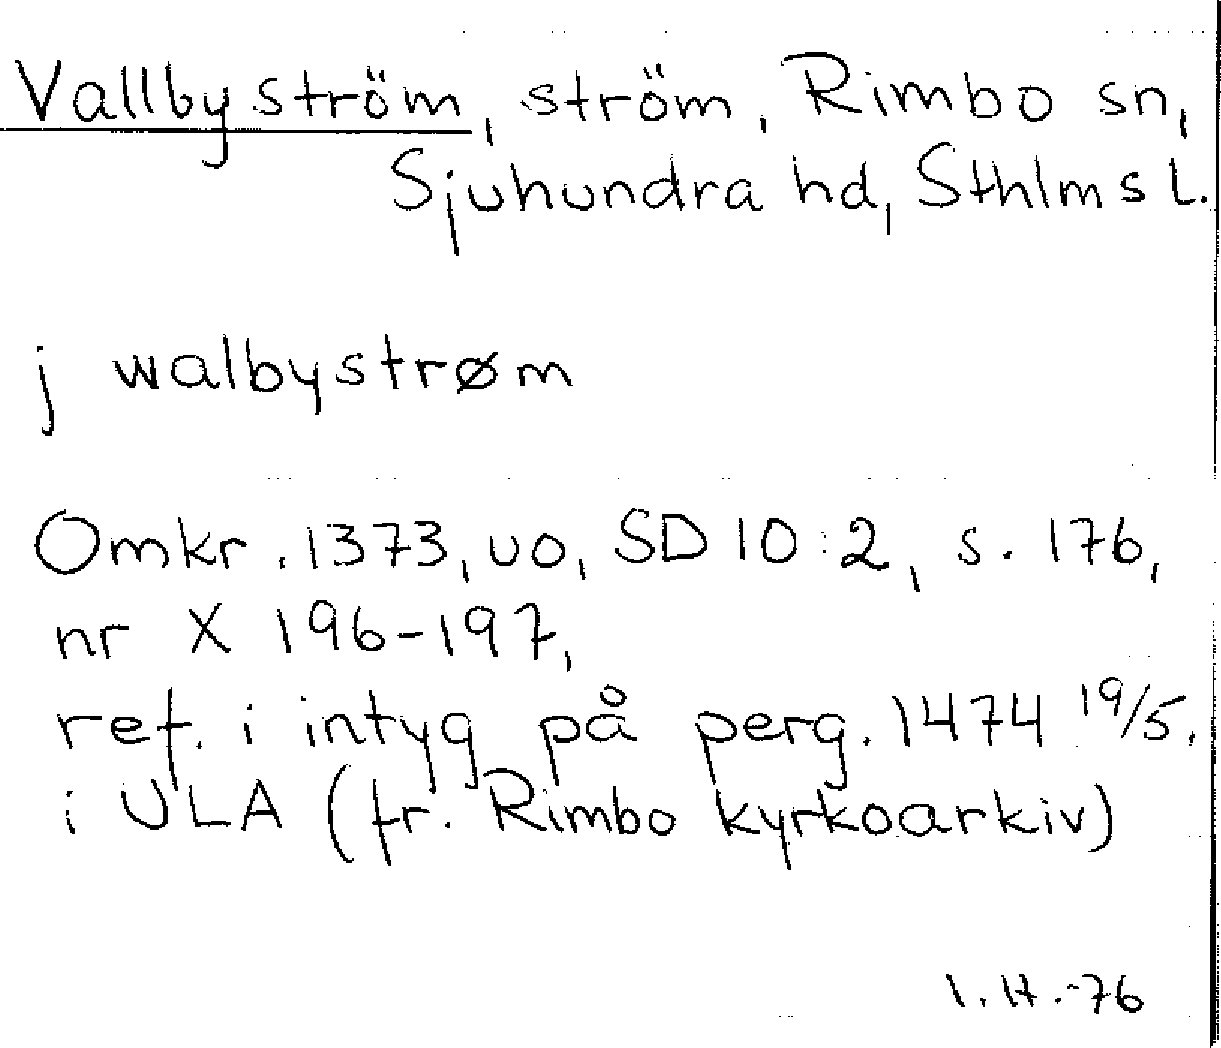 Vallbyström, ström, Rimbo sn,
Sjuhundra hd, Sthlms l.
j walbystrøm
Omkr. 1373, uo, SD 10:2, s. 176,
nr X 196-197,
ref. i intyg på perg. 1474 19/5.
i ULA (fr. Rimbo kyrkoarkiv)
I.H.-76